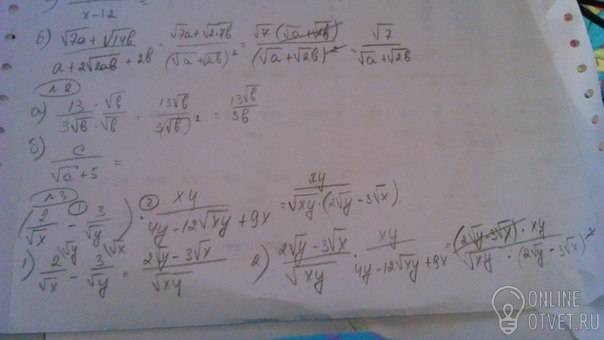 x-12 =
б) (√7a + √14b)/(a + 2√2ab + 2b) = (√7a + √2·7b)/(√a + √2b)² = √7(√a + √2b)/(√a + √2b)² = √7/(√a + √2b)
№2
а) 13·√b/(3√b·√b) = 13√b/3(√b)² = 13√b/3b
б) c/(√a + 5) =
№3
(2/√x - 3/√y) · xy/(4y - 12√xy + 9x) = xy/(√xy·(2√y - 3√x))
1) 2/√x - 3/√y = (2√y - 3√x)/√xy 2) (2√y - 3√x)/√xy · xy/(4y - 12√xy + 9x) = (2√y - 3√x)·xy/(√xy·(2√y - 3√x)²)
ONLINE
OTVET.RU